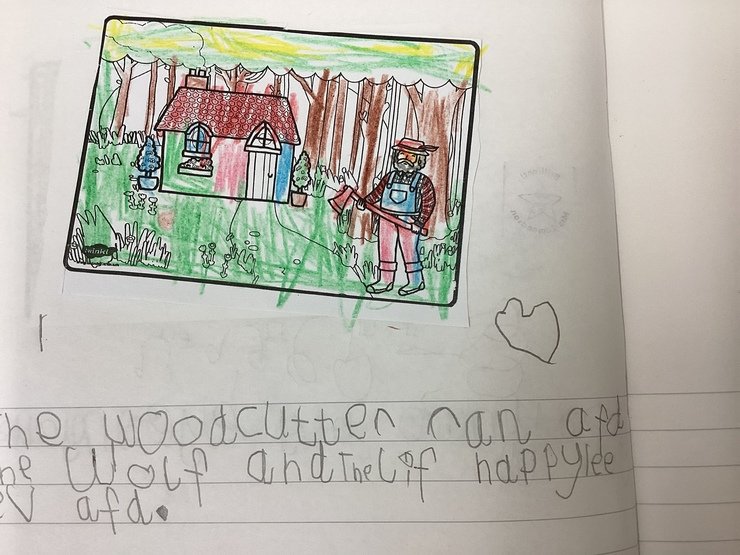 twinkl
he woodcutter ran afd
he wolf and The lif happylee
ev afd.